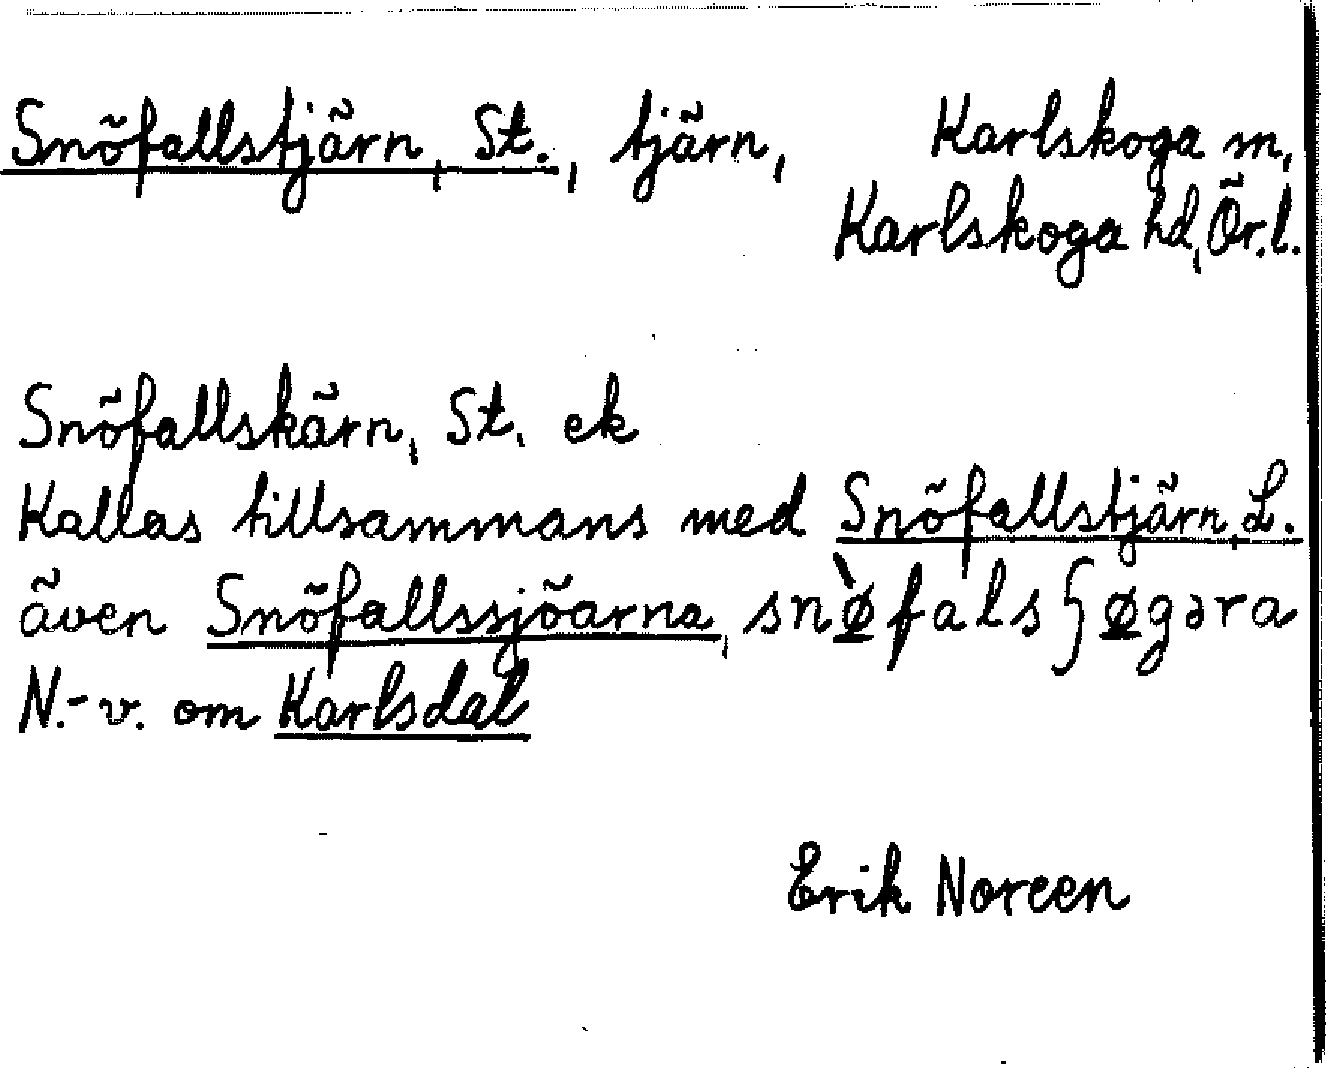 Snöfallstjärn, St., tjärn, Karlskoga sn,
Karlskoga hd, Ör.l.
Snöfallskärn, St. ek
Kallas tillsammans med Snöfallstjärn, L.
även Snöfallssjöarna, snø̀fals ʃøgəra
N.-v. om Karlsdal
Erik Noreen